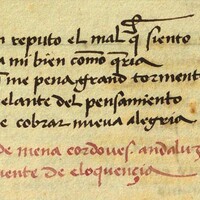 n reputo el mal q̃ siento
a mi bien como q̃ria
me pena grand torment
elante del pensamiento
e cobrar nueva alegria
de mena cordoues. andaluz
uente de eloquençia